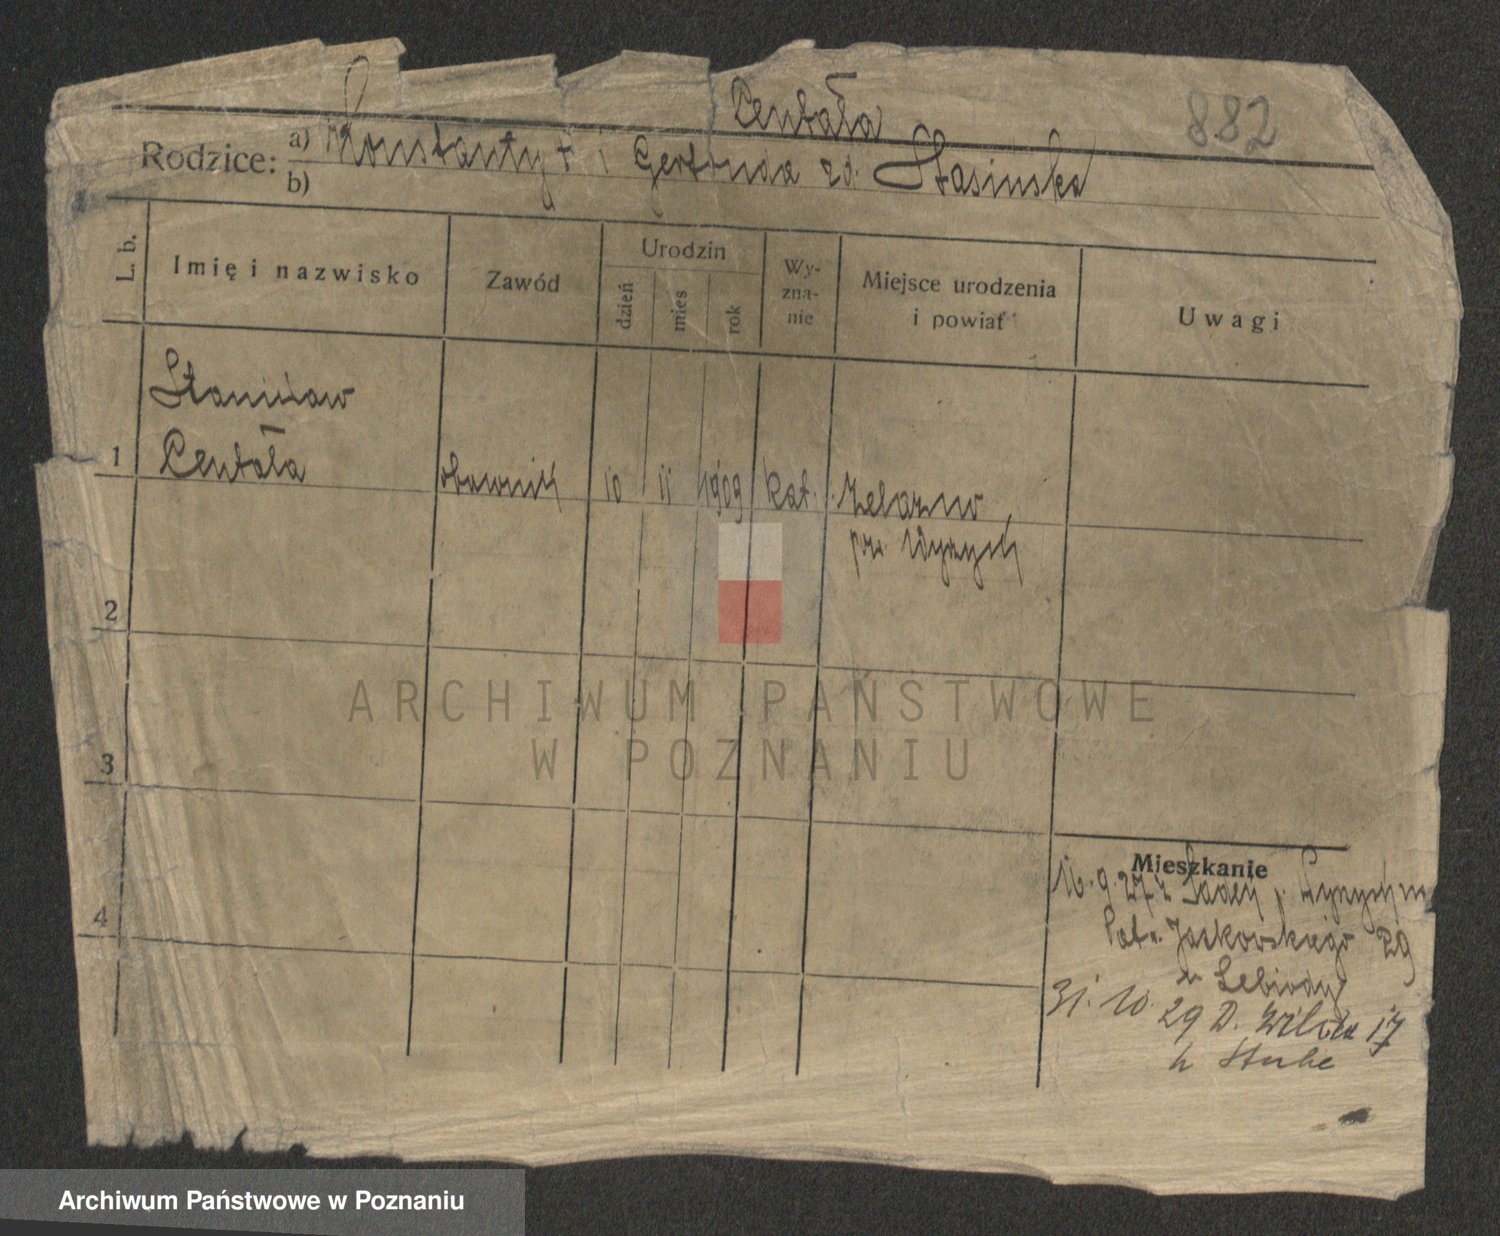 882
Centała
Rodzice: a) Konstanty + i Gertruda zd. Stasinska
b)
L. b. Imię i nazwisko Zawód Urodzin dzień mies rok Wyzna-nie Miejsce urodzenia i powiat Uwagi
Stanisław
1 Centała 10 11 1909 kat. Żelazno
pw. Wyrzysk
2
3
4
Mieszkanie
16.9.27 z Sadek p. Wyrzysk
Jackowskiego 29
u Lebiody
31.10.29 D. Wilda 17
h Stube
ARCHIWUM PAŃSTWOWE
W POZNANIU
Archiwum Państwowe w Poznaniu